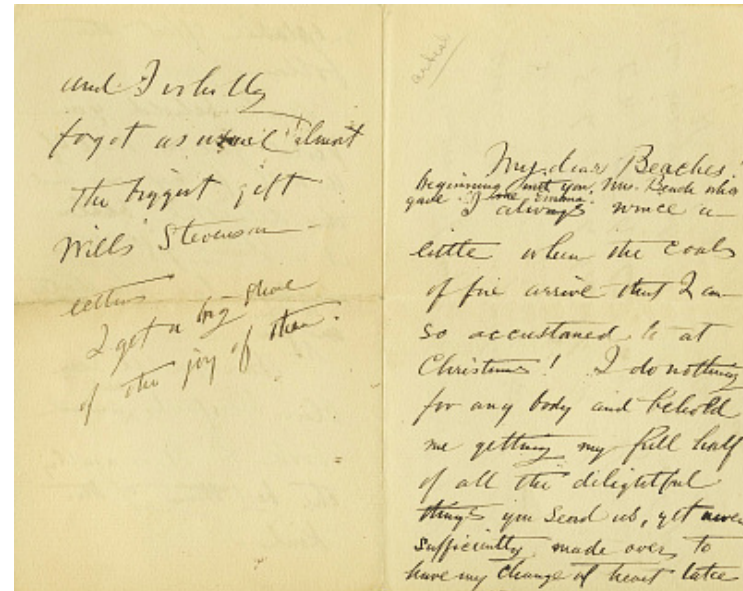 and I wholly
forgot as usual almost
the biggest gift
Wills' Stevenson
letters
I get a big share
of the joy of them.
artist
My dear Beaches!
beginning with you, Mrs. Beach who
gave Emma.
I always wince a
little when the coals
of fire arrive that I am
so accustomed to at
Christmas! I do nothing
for any body and behold
me getting my full half
of all the delightful
things you send us, yet never
sufficiently made over to
have my change of heart take